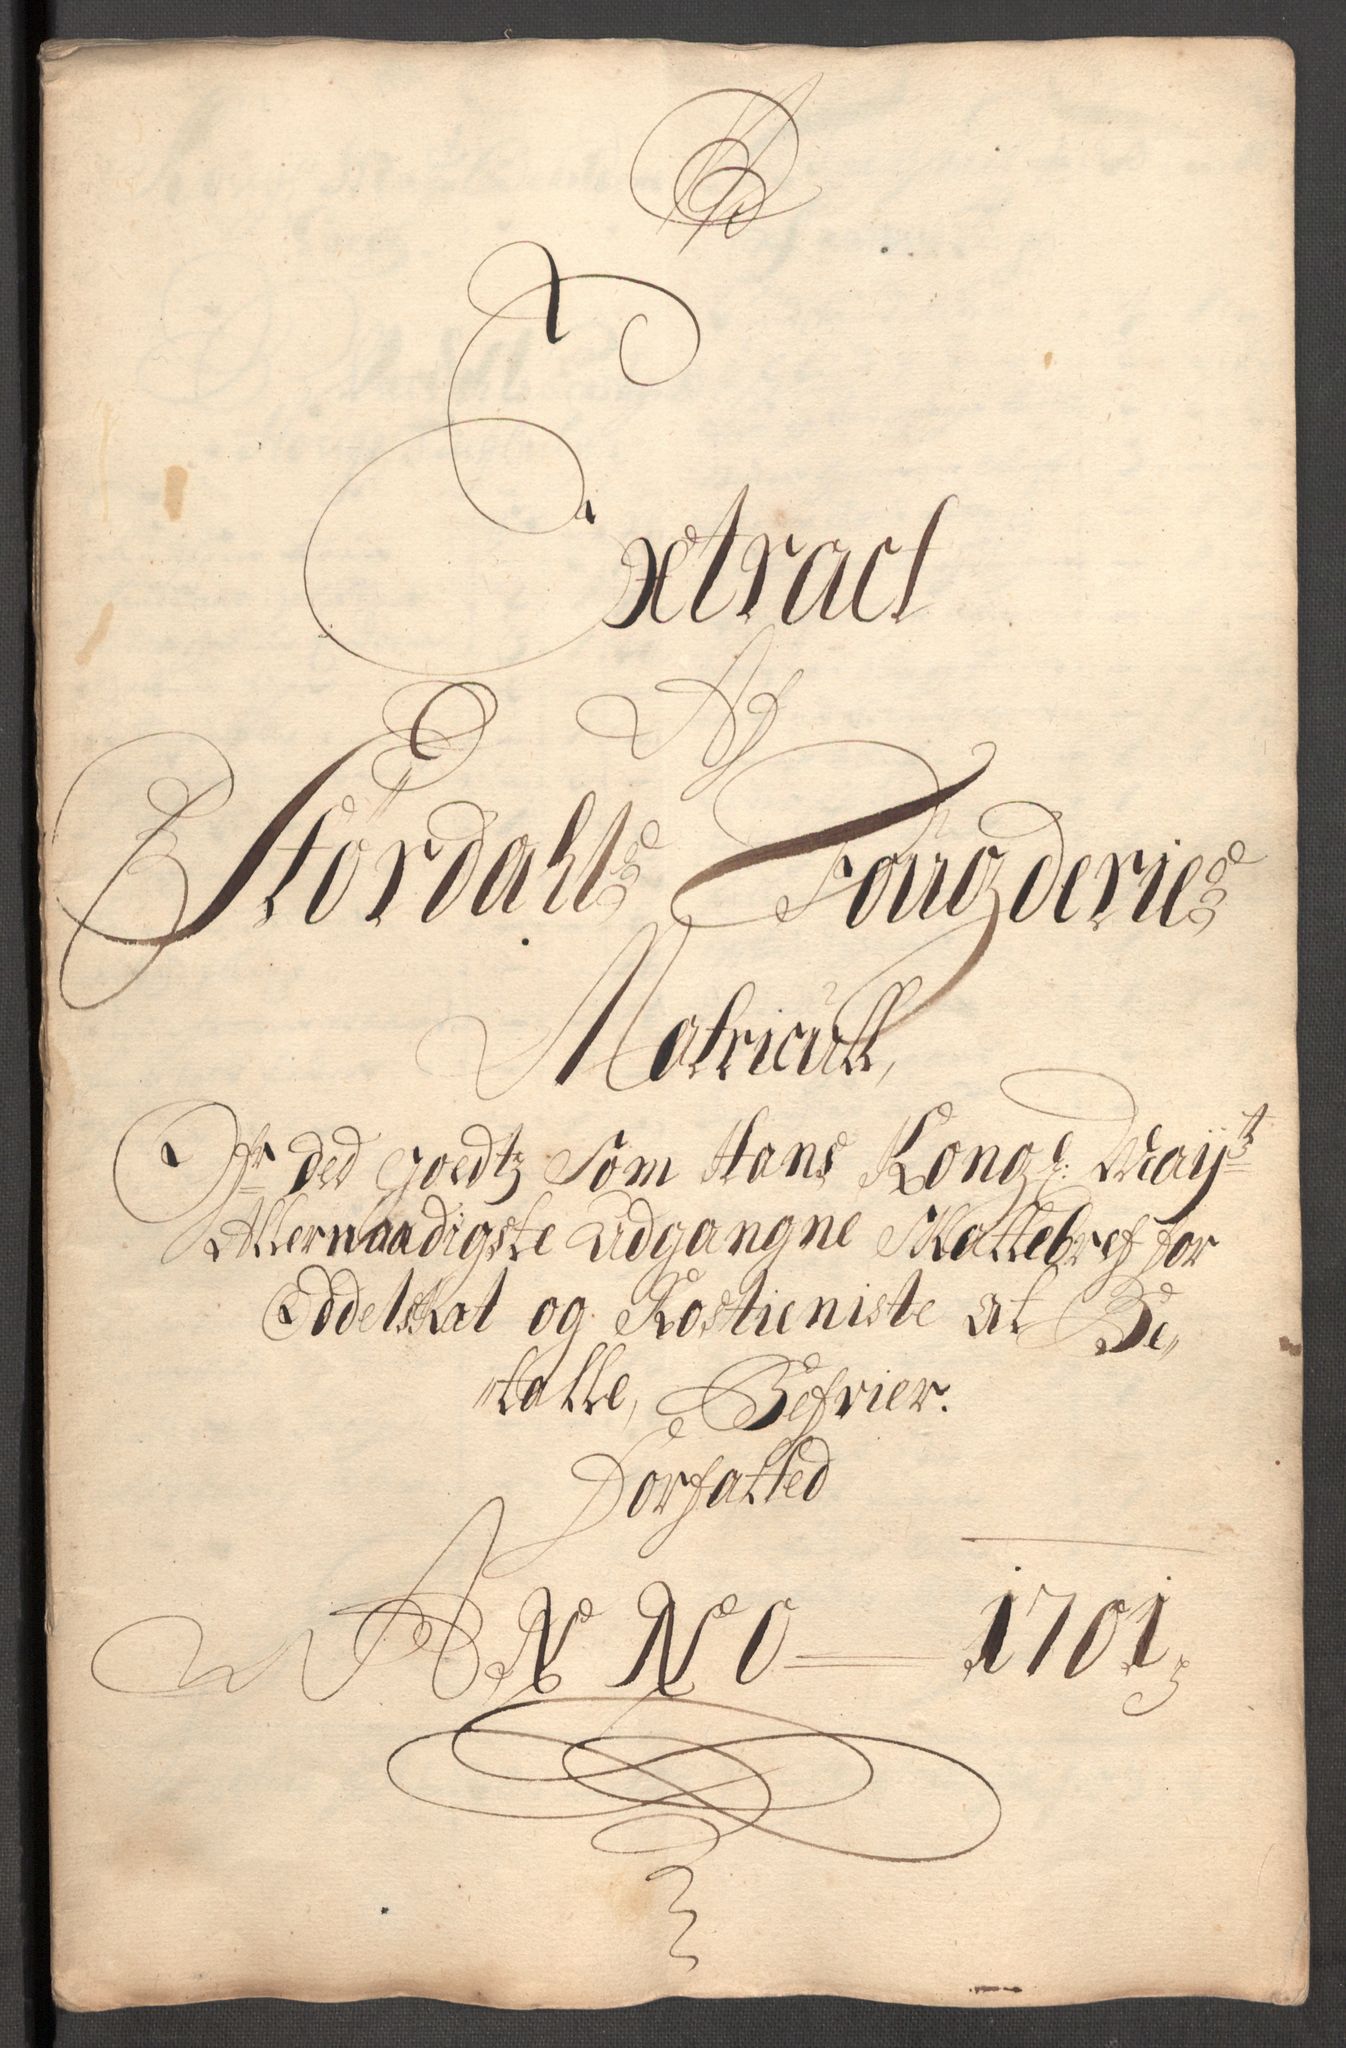 Extract
Af
Størdahls Fougderies
Matricull,
Ofr ded goedtz Som Hans Kongl: Mayttz
Allernaadigste Udgangne Skattebref for
Oddelskat og Rostieniste at Be,,
,,talle, Befrier.
Forfatted
ANNO 1701